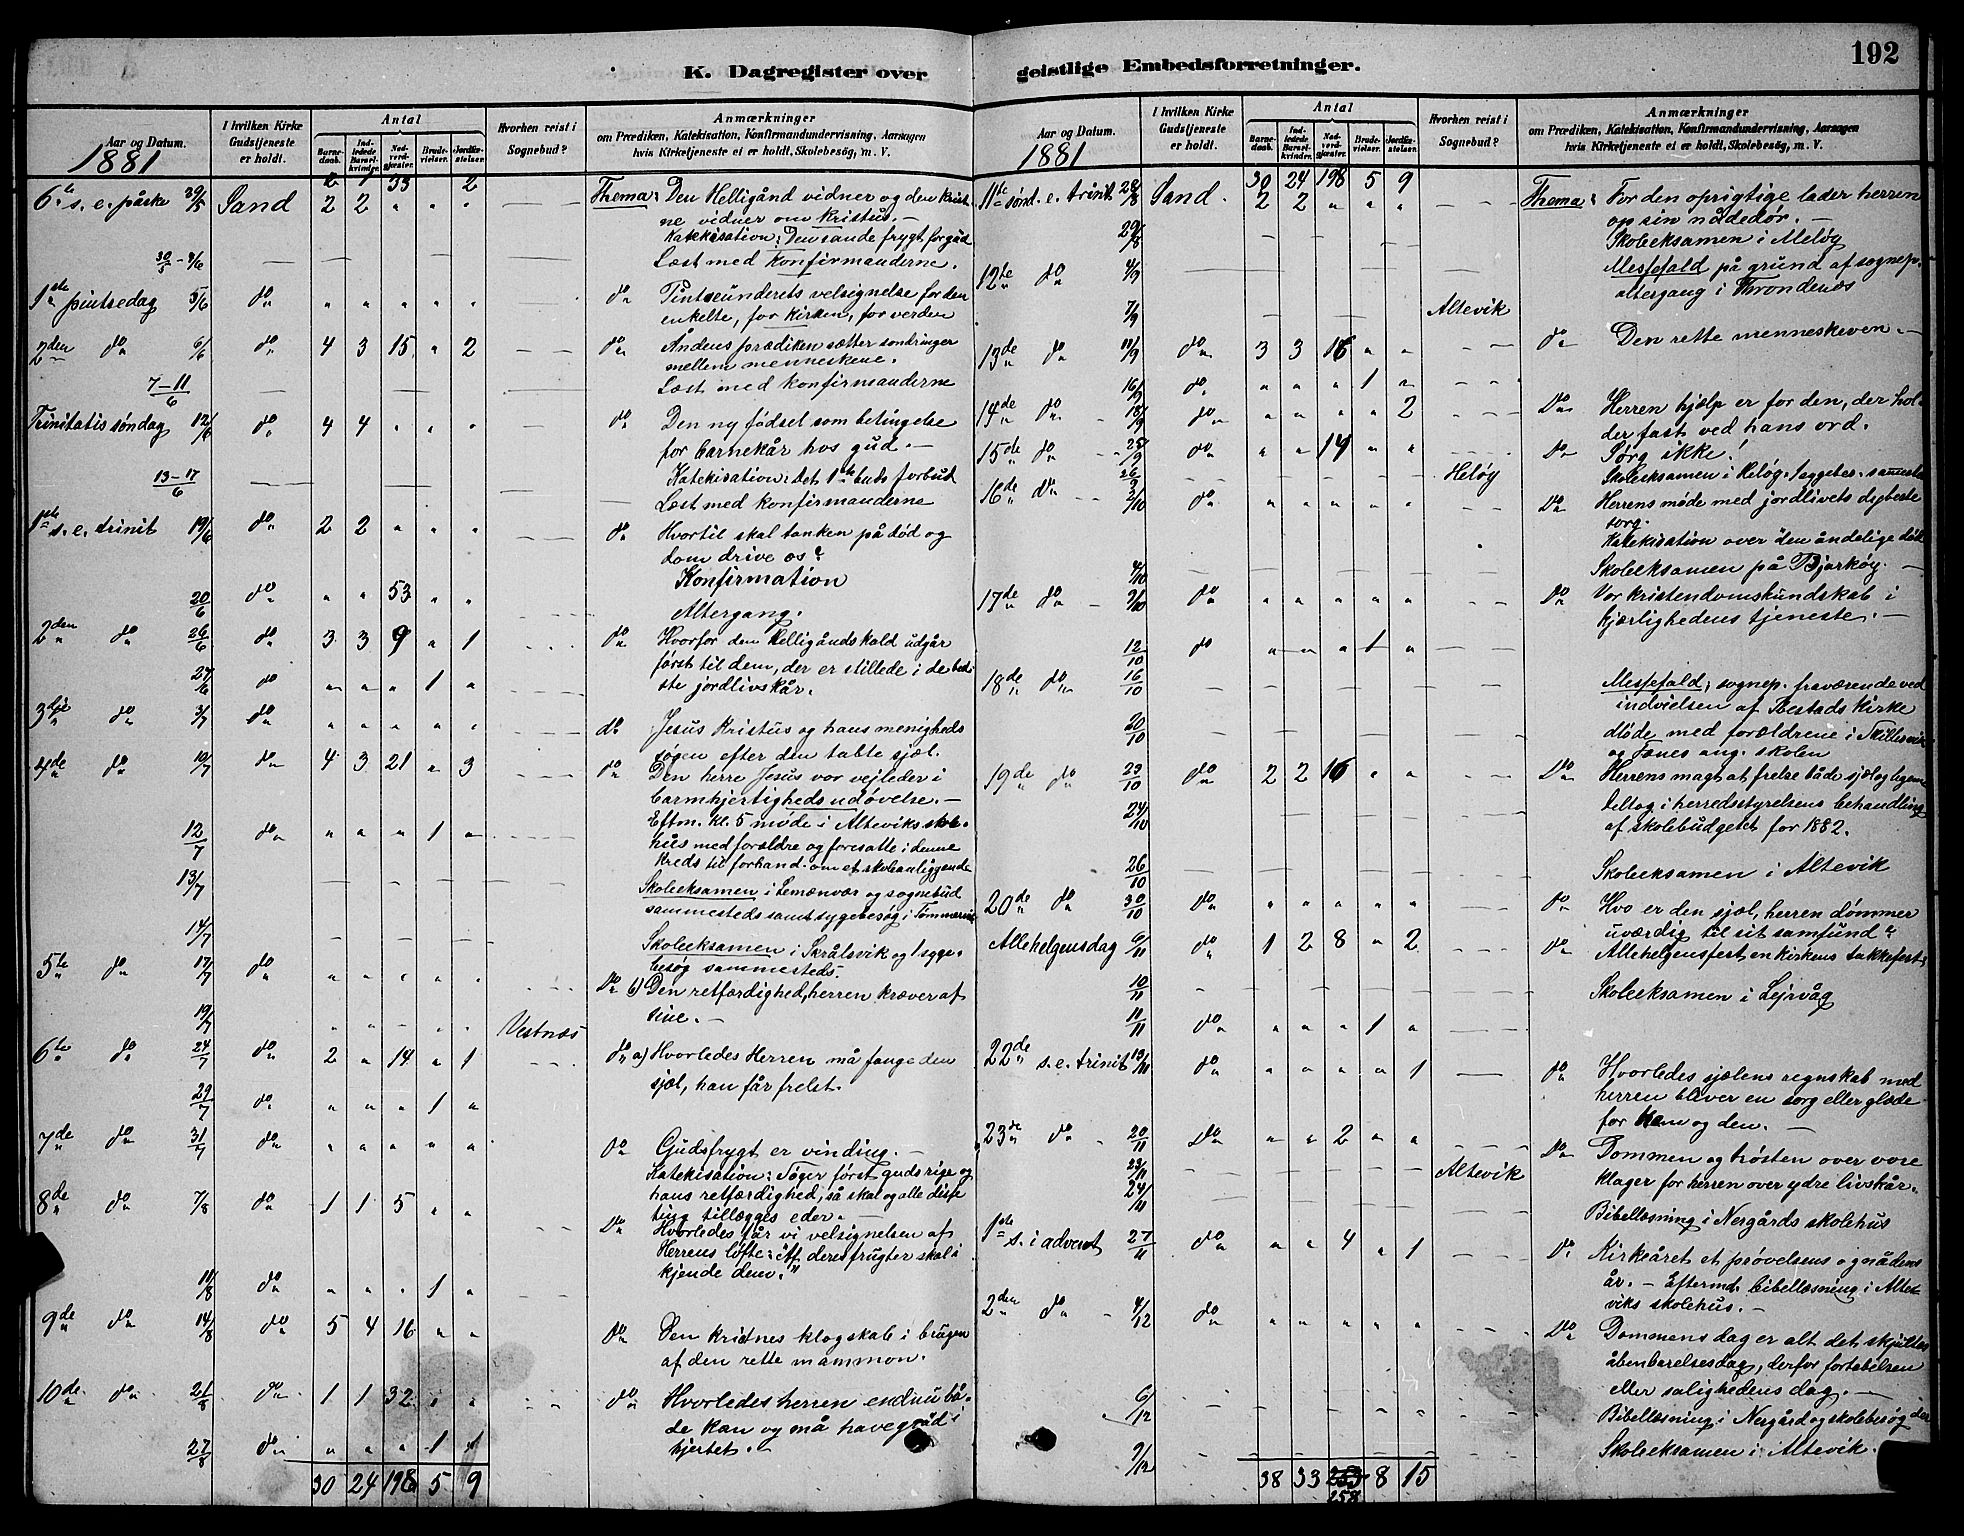 192
K. Dagregister over
geistlige Embedsforretninger.
Aar og Datum.
1881
I hvilken Kirke Gudstjeneste er holdt.
Antal
Barnedaab. Indledede Barselkvinder. Nadverdgjæster. Brudevielser. Jordfæstelser.
Hvorhen reist i Sognebud?
Anmærkninger
om Prædiken, Katekisation, Konfirmandundervisning, Aarsagen
hvis Kirketjeneste ei er holdt, Skolebesøg, m. V.
2 1 33 2
6te s. e. påske 29/5 Sand 2 2 " " " Thema: Den Helligånd vidner og den krist
ne vidner om Kristus. —
Katekisation: Den sande frygt for gud
30/5 - 4/6 Læst med Konfirmanderne.
1ste pintsedag 5/6 do " " " " " do Pintseunderets velsignelse for den
enkelte, for kirken, for verden
2den do 6/6 do 4 3 15 " 2 do Åndens prædiken sætter sondringer
mellem menneskene.
7-11/6 Læst med konfirmanderne
Trinitatis søndag 12/6 do 4 4 " " " do Den ny fødsel som betingelse
for barnekår hos gud. —
Katekisation: Det 1ste buds forbud
13-17/6 Læst med konfirmanderne
1ste s. e. trinit 19/6 do 2 2 " " " do Hvortil skal tanken på død og
dom drive os?
Konfirmation
20/6 do " " 53 " " Altergang.
2den do 26/6 do 3 3 9 " 1 do Hvorfor den Helligånds kald udgår
først til dem, der er stillede i de bed
27/6 do " " " 1 " ste jordlivskår.
3dje do 3/7 do " " " " " do Jesus Kristus og hans menigheds
søgen efter den tabte sjæl.
4de do 10/7 do 4 3 21 " 3 do Den herre Jesus vor vejleder i
barmhjertigheds udøvelse. —
Eftm. kl. 5 møde i Alteviks skole-
12/7 do " " " 1 " hus med forældre og foresatte i denne
kreds til forhand. om et skoleanliggende
13/7 Skoleeksamen i Lemænvær og sognebud
sammesteds samt sygebesøg i
14/7 Skoleeksamen i Skrålsvik og 1 syge-
besøg sammesteds.
5te do 17/7 do " " " " " do b) Den retfærdighed, herren kræver af
sine. —
19/7 " " " " " Vestnæs
6te do 24/7 do 2 " 14 " 1 do a) Hvorledes Herren må fange den
sjæl, han får frelst.
29/7 do " " " 1 "
7de do 31/7 do " " " " " do Gudsfrygt er vinding. —
Katekisation: Søger først guds rige og
hans retfærdighed, så skal og alle disse
8de do 7/8 do 1 1 5 " " ting tillægges eder. —
do Hvorledes får vi velsignelsen af
Herrens løfte: "Af deres frugter skal i
kjende dem."
11/8 do " " " 1 "
9de do 14/8 do 5 4 16 " " do Den kristnes klogskab i brugen
af den rette mammon.
10de do 21/8 do 1 1 32 " " do Hvorledes herren endnu bå-
de kan og må have gråd i
hjertet. —
27/8 do " " " 1 1
30 24 198 5 9
Aar og Datum.
1881
I hvilken Kirke Gudstjeneste er holdt.
Antal
Barnedaab. Indledede Barselkvinder. Nadverdgjæster. Brudevielser. Jordfæstelser.
Hvorhen reist i Sognebud?
Anmærkninger
om Prædiken, Katekisation, Konfirmandundervisning, Aarsagen
hvis Kirketjeneste ei er holdt, Skolebesøg, m. V.
30 24 198 5 9
11te sønd. e. trinit 28/8 Sand. 2 2 " " " Thema: For den oprigtige lader herren
op sin nådedør. —
29/8 Skoleeksamen i Meløy
12te do 4/9 Messefald på grund af sognep.
altergang i Trondenæs
7/9 Altevik
13de do 11/9 do 3 3 16 " " do Den rette menneskeven. —
16/9 do " " " 1 "
14de do 18/9 do " " " " 2 do Herren hjælp er for den, der hol
der fast ved hans ord.
15de do 25/9 do " " 14 " " do Sørg ikke!
26/9 Heløy Skoleeksamen i Heløy. Sygebes. sammesteds
16de do 2/10 do " " " " " do Herrens møde med jordlivets dybeste
sorg.
Katekisation over den åndelige død
4/10 Skoleeksamen på Bjarkøy. —
17de do 9/10 do " " " " " do Vor kristendomskundskab i
kjærlighedens tjeneste. —
12/10 do " " " 1 "
18de do 16/10 Messefald; sognep. fraværende ved
indvielsen af Ibestads Kirke
20/10 Møde med forældrene i
og Fænes ang. skolen
19de do 23/10 do 2 2 16 " " do Herrens magt at frelse både sjæl og legem
24/10 Deltog i herredsstyrelsens behandling
af skolebudgetet for 1882.
26/10 Skoleeksamen i Altevik
20de do 30/10 do " " " " " do Hvo er den sjæl, herren dømmer
uværdig til sit samfund?
Allehelgensdag 6/11 do 1 2 8 " 2 do Allehelgensfest en kirkens takkefest
10/11 Skoleeksamen i Lejrvåg
11/11 do " " " 1 "
22de s. e. trinit 13/11 do " " " " 1 do Hvorledes sjælens regnskab med
herren bliver en sorg eller glæde
for ham og den. —
23de do 20/11 do " " 2 " " do Dommen og trøsten over vore
23/11 Altevik klager for herren over ydre livskår.
24/11 Bibellæsning i Nergårds skolehus
1ste s. i advent 27/11 do " " 4 " 1 do Kirkeåret et prøvelsens og nådens
år. — Eftermd. bibellæsning i Alte-
viks skolehus. —
2den do 4/12 do " " " " " do Dommens dag er alt det skjultes
åbenbarelsesdag, derfor fortabelsen
eller salighedens dag. —
6/12 Bibellæsning i Nergård og skolebesøg der
9/12 Skoleeksamen i Altevik.
38 33 253 8 15
258